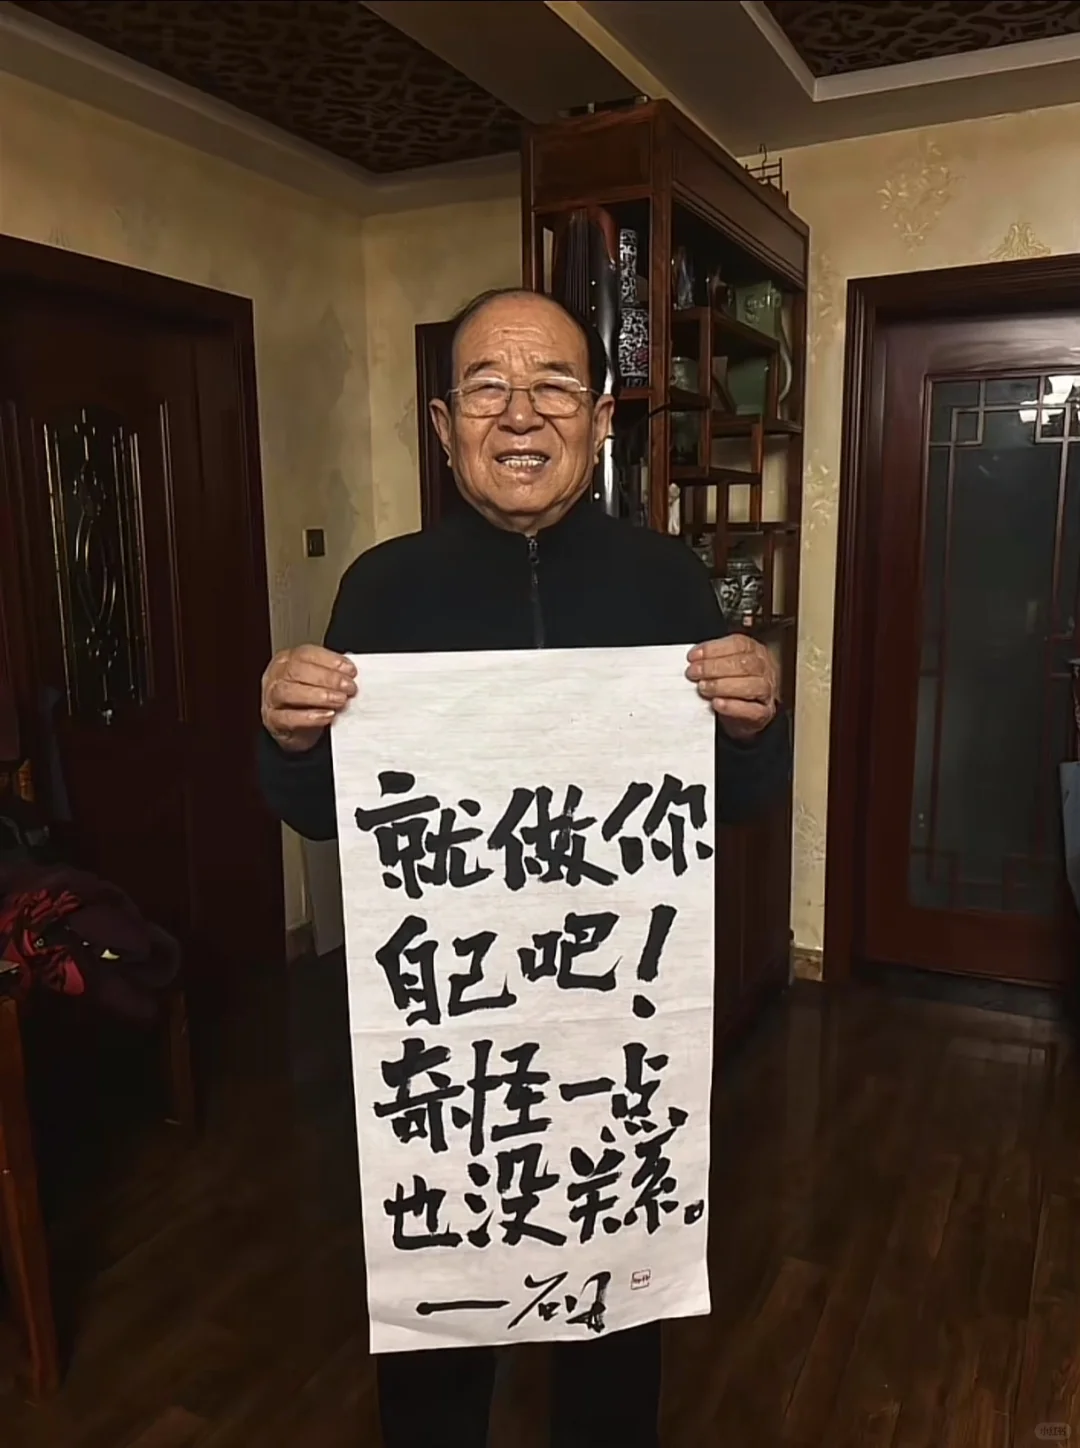 就做你
自己吧！
奇怪一点
也没关系。
小红书